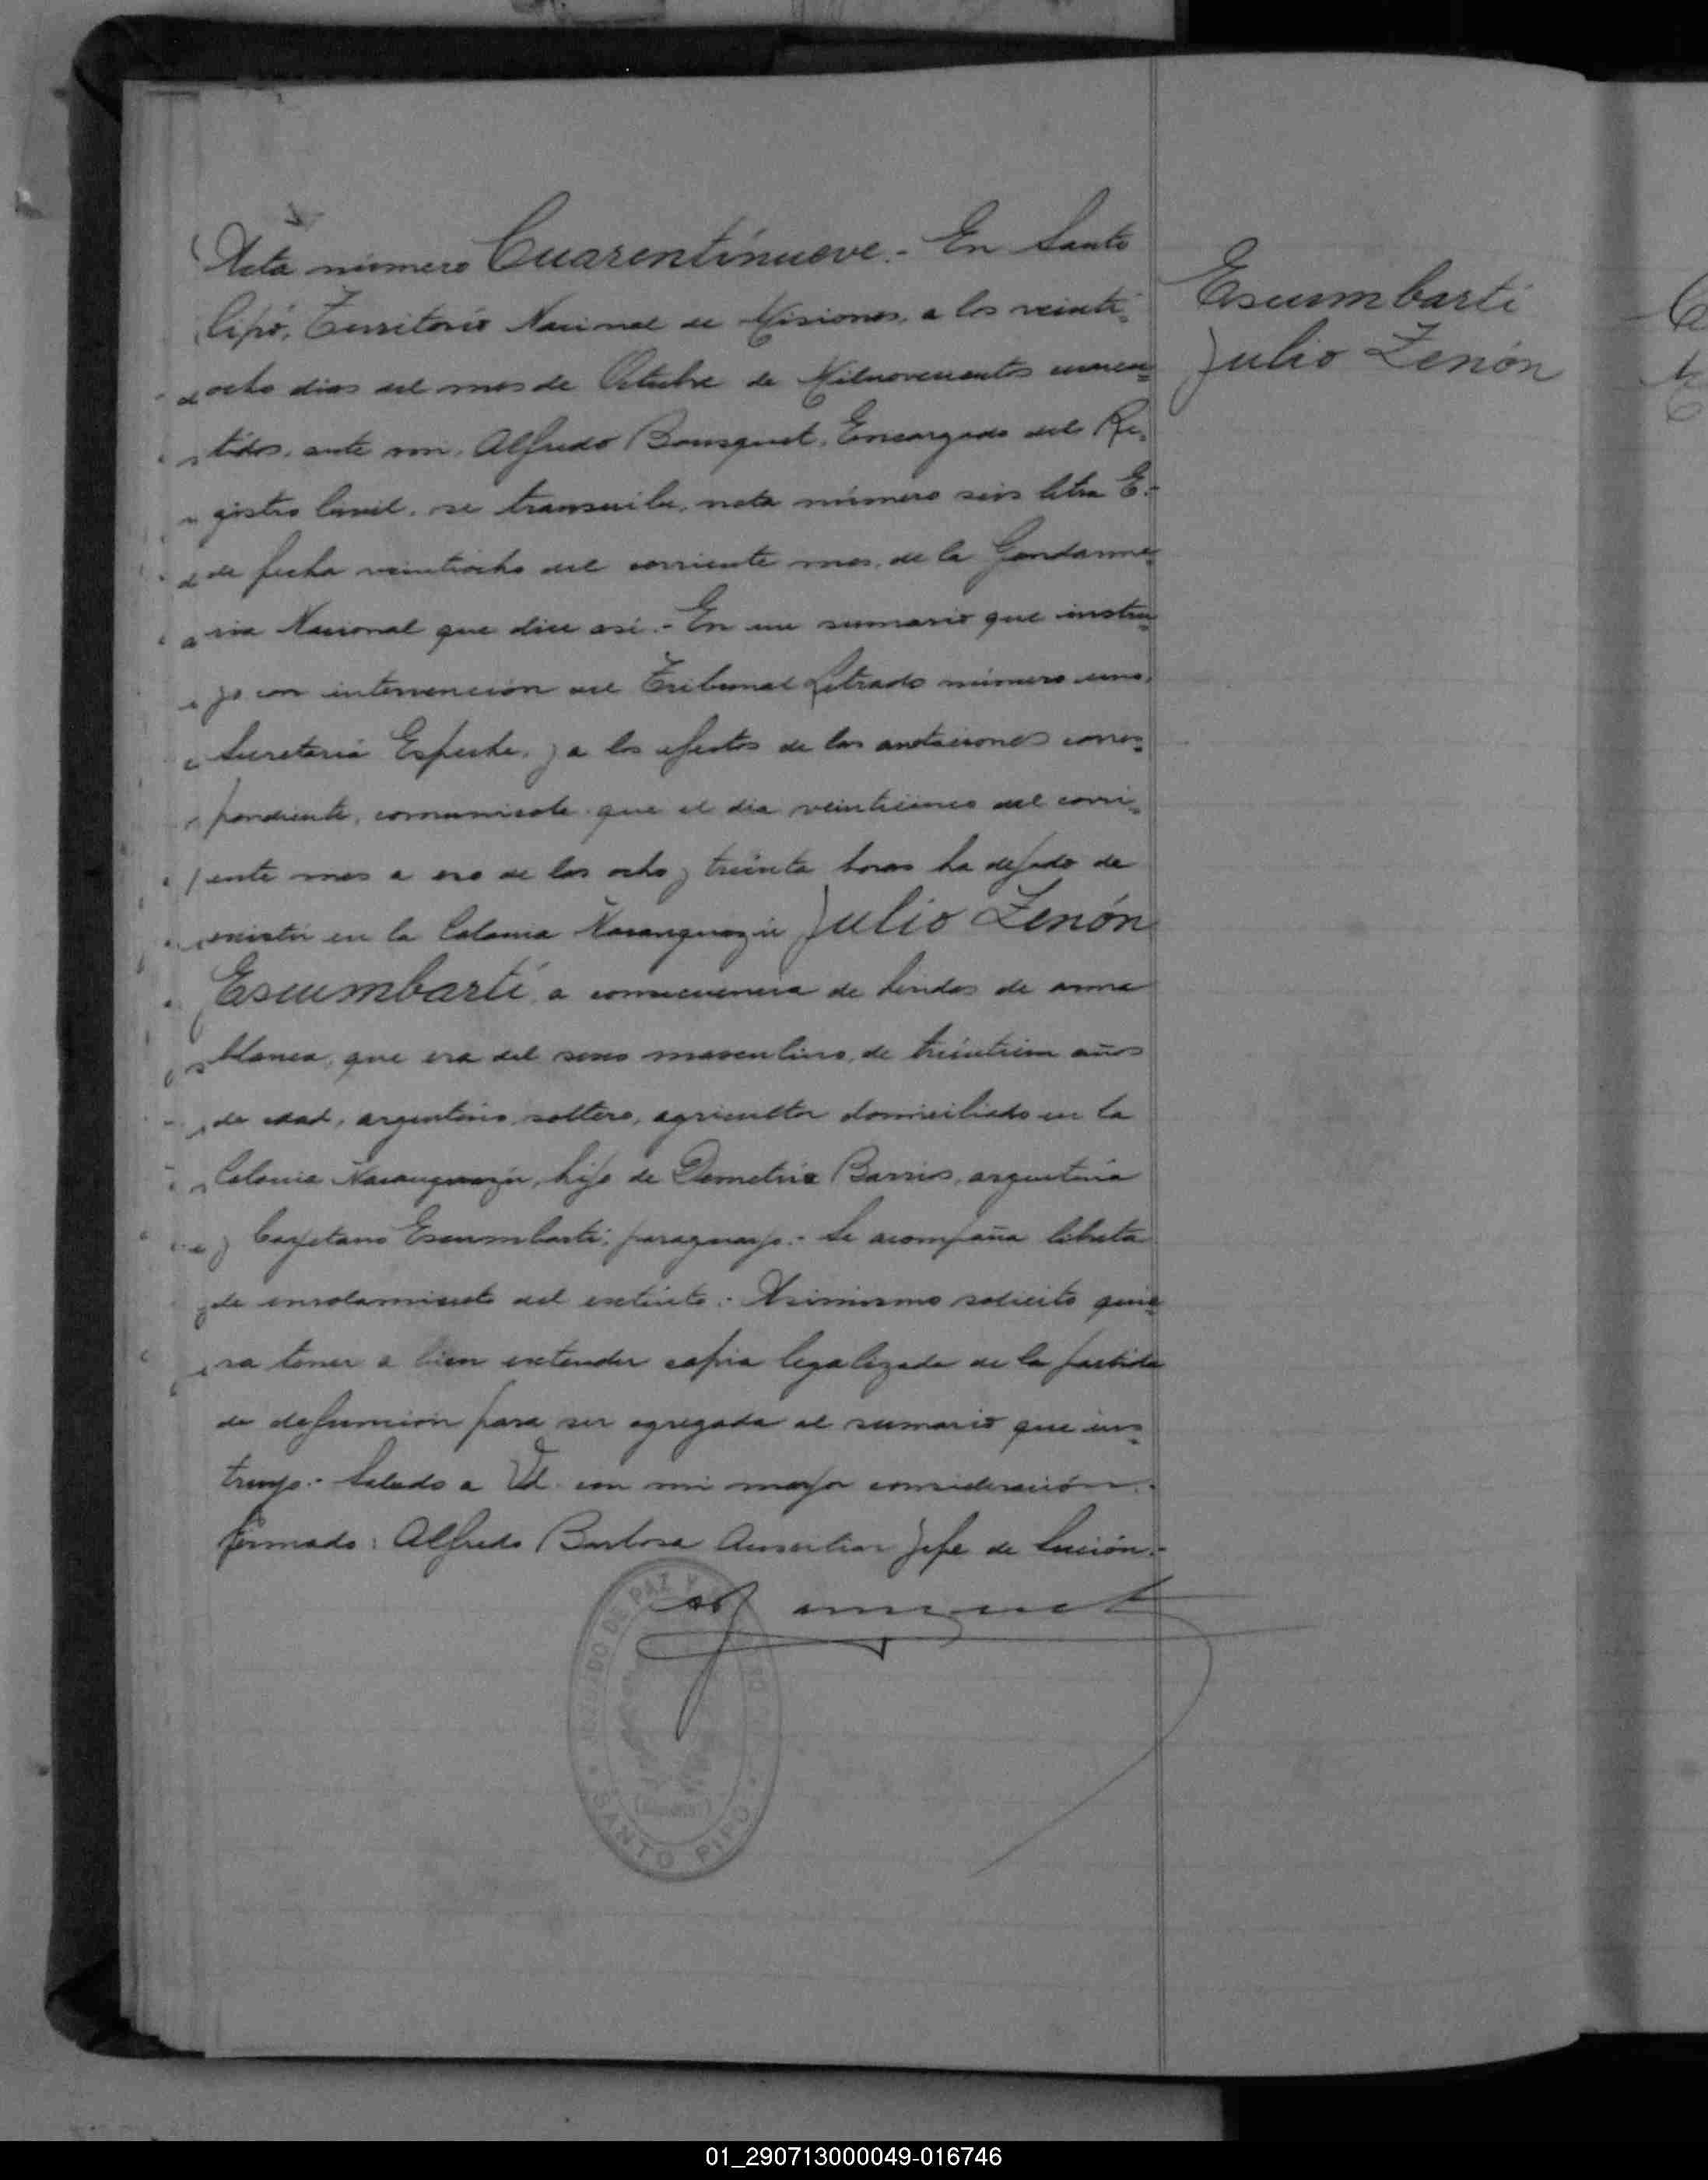 Acta número Cuarentinueve.- En Santo
Pipó, Territorio Nacional de Misiones, a los veinti=
ocho dias del mes de Octubre de Milnovecientos cuaren=
tidos, ante mi, Alfredo Bousquet, Encargado del Re=
gistro Civil, se transcribe, nota número seis letra E.-
de fecha veintiocho del corriente mes, de la Gendarme=
ria Nacional que dice asi.- En un sumario que instru=
yo con intervención del Tribunal Letrado número uno,
Secretaria Espeche, y a los efectos de las anotaciones corres=
pondiente, comunicole que el dia veinticinco del corri=
ente mes a eso de las ocho y treinta horas ha dejado de
existir en la Colonia Julio Zenón
Escumbarti, a consecuencia de heridas de arma
blanca, que era del sexo masculino, de años
de edad, argentino, soltero, agricultor domiciliado en la
Colonia hijo de Demetria Barrios, argentina
y Cayetano Escumbarti, paraguayo.- Se acompaña libreta
de enrolamiento del extinto.- Asimismo solicito quie=
ra tener a bien extender copia legalizada de la partida
de defunción para ser agregada al sumario que ins=
truyo.- Saludo a Ud. con mi mayor consideración.-
firmado: Alfredo Barbosa Jefe de Sección.-
Escumbarti
Julio Zenón
JUZGADO DE PAZ Y
SANTO PIPO
01_290713000049-016746